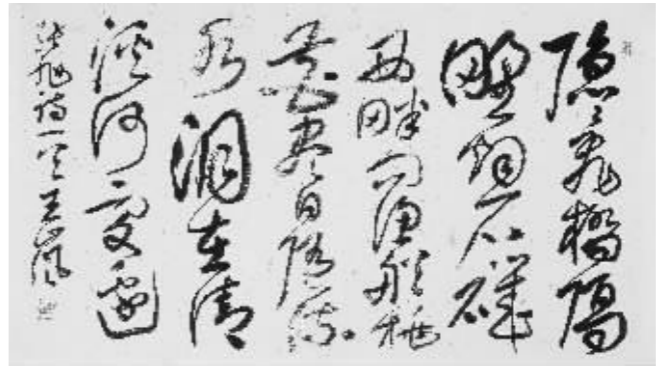 隱々飛橋隔
野烟石磯
西畔問漁船桃
花盡日隨流
水洞在清
溪何處邊
張旭詩一首王嵐